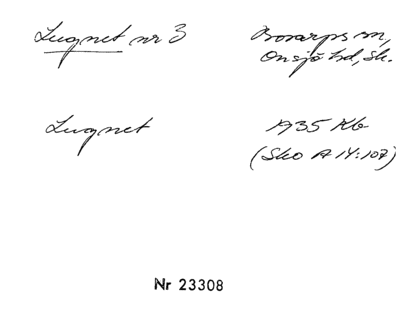 Lugnet nr 3
Bosarps sn,
Onsjö hd, Sk.
Lugnet
1935 Kb
(Sko A 14:107)
Nr 23308